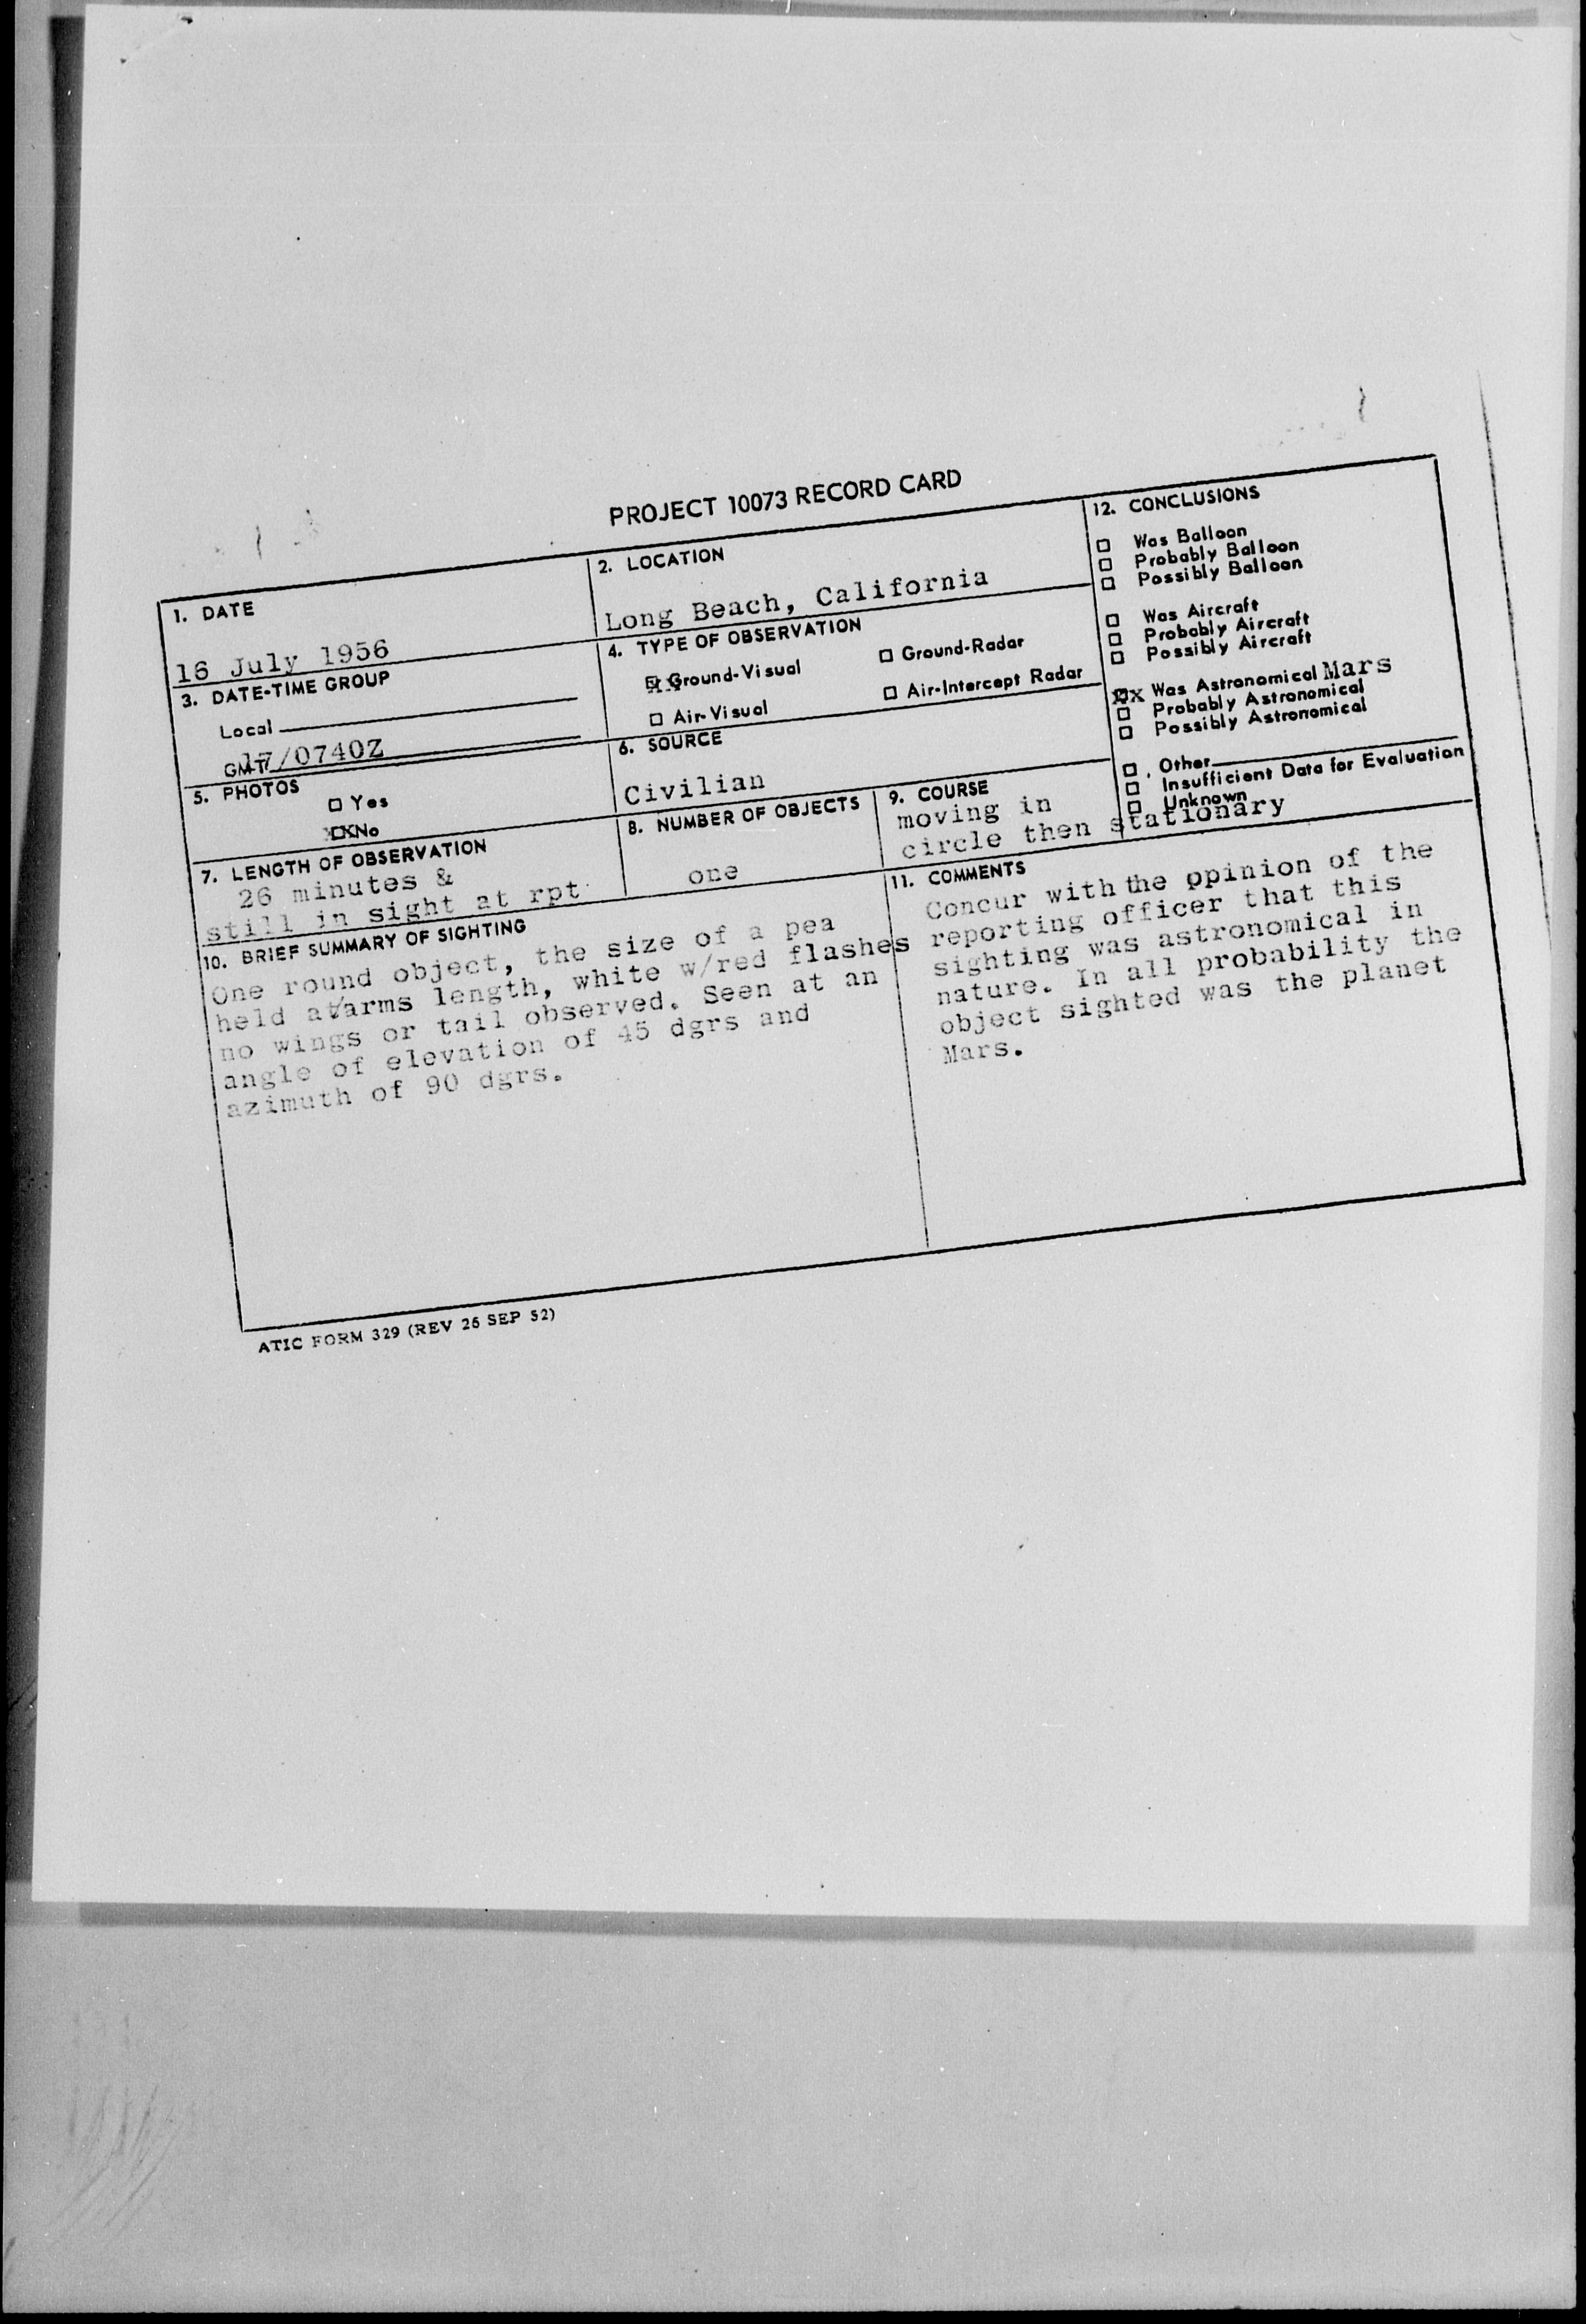 PROJECT 10073 RECORD CARD
1. DATE
16 July 1956
2. LOCATION
Long Beach, California
3. DATE-TIME GROUP
Local
GMT 17/0740Z
4. TYPE OF OBSERVATION
XX Ground-Visual
□ Ground-Radar
□ Air-Visual
□ Air-Intercept Radar
5. PHOTOS
□ Yes
XX No
6. SOURCE
Civilian
7. LENGTH OF OBSERVATION
26 minutes &
still in sight at rpt
8. NUMBER OF OBJECTS
one
9. COURSE
moving in
circle then stationary
12. CONCLUSIONS
□ Was Balloon
□ Probably Balloon
□ Possibly Balloon
□ Was Aircraft
□ Probably Aircraft
□ Possibly Aircraft
XX Was Astronomical Mars
□ Probably Astronomical
□ Possibly Astronomical
□ Other
□ Insufficient Data for Evaluation
□ Unknown
10. BRIEF SUMMARY OF SIGHTING
One round object, the size of a pea
held at/arms length, white w/red flashes
no wings or tail observed. Seen at an
angle of elevation of 45 dgrs and
azimuth of 90 dgrs.
11. COMMENTS
Concur with the opinion of the
reporting officer that this
sighting was astronomical in
nature. In all probability the
object sighted was the planet
Mars.
ATIC FORM 329 (REV 26 SEP 52)